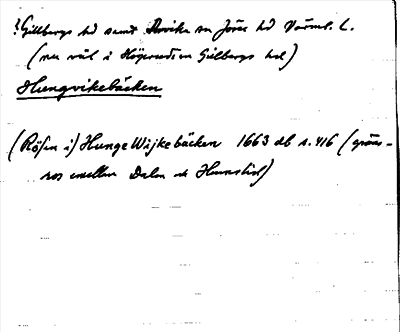 ? Gillbergs hd samt Arvika sn Jösse hd Värml. l.
(nu väl i Högerud sn Gillbergs hd)
Hungvikebäcken
(Rösen i) Hunge Wijkebäcken 1663 db s. 416 (gräns-
ros emellan Dalen ok Hunstid)